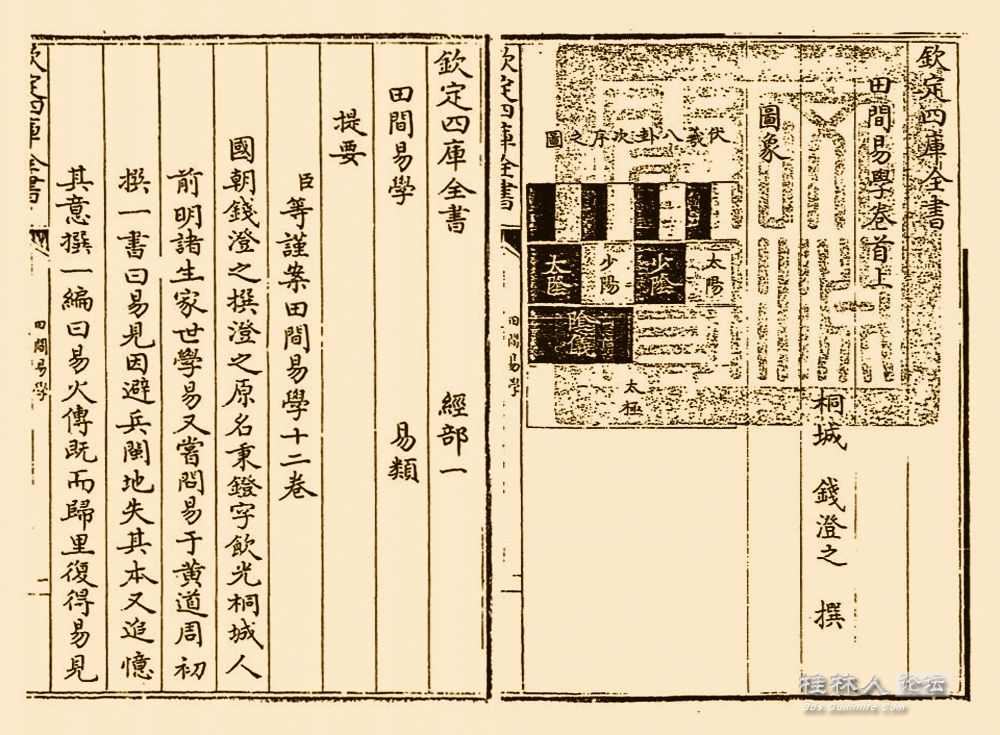 欽定四庫全書
田間易學卷首上
桐城 錢澄之 撰
圖象
伏羲八卦次序之圖
太陽
少陰
少陽
太陰
陰儀
太極
欽定四庫全書
田間易學
欽定四庫全書 經部一
田間易學 易類
提要
臣等謹案田間易學十二卷
國朝錢澄之撰澄之原名秉鐙字飲光桐城人
前明諸生家世學易又嘗問易于黄道周初
撰一書曰易見因避兵閩地失其本又追憶
其意撰一編曰易火傳既而歸里復得易見
欽定四庫全書
田間易學
桂林人 论坛
bbs.Guilinlife.Com